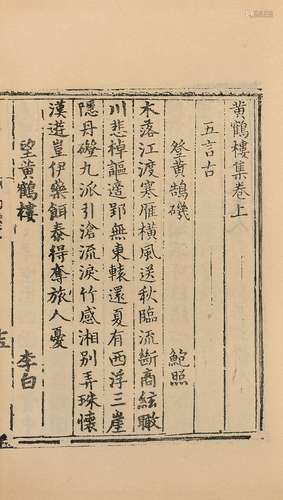 黄鶴樓集卷上
五言古
登黄鵠磯
鮑照
木落江渡寒雁横風送秋臨流斷商絃瞰
川悲棹謳適郢無東轅還夏有西浮三崖
隱丹磴九派引滄流淚竹感湘别弄珠懷
漢遊豈伊樂餌泰得奪旅人憂
望黄鶴樓
李白